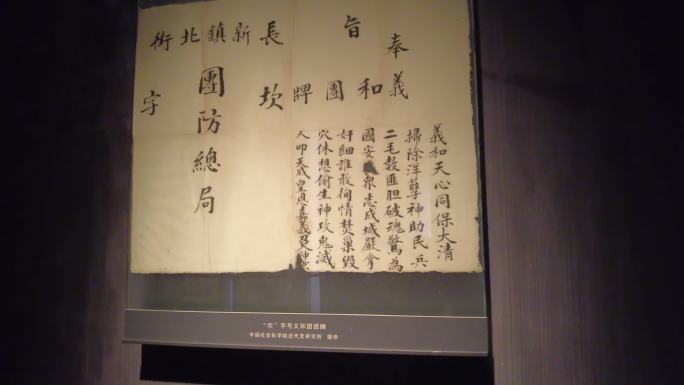 奉旨
義和團牌
義和天心同保大清
掃除洋孽神助民兵
二毛教匪胆破魂驚為
國安眾志成城嚴拿
奸細誰敢徇情焚巢毀
穴休想偷生神攻鬼滅
人叩天成皇恩嘉義
長新鎮北街
坎字
團防總局
“坎”字号义和团团牌
中国社会科学院近代史研究所 提供